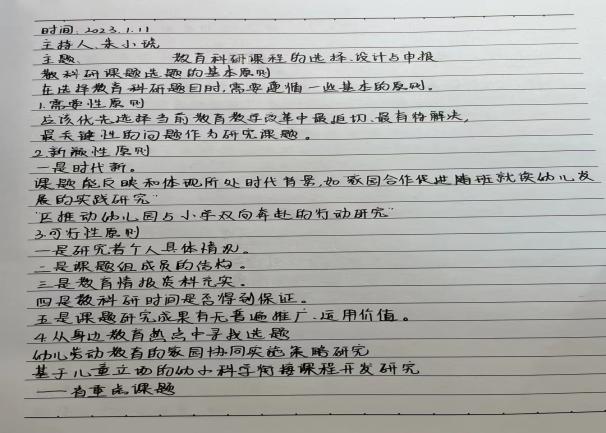 时间:2023.1.11
主持人:朱小琥
主题: 教育科研课程的选择、设计与申报
教科研课题选题的基本原则
在选择教育科研题目时,需要遵循一些基本的原则。
1.需要性原则
应该优先选择当前教育教学改革中最迫切、最有待解决,
最关键性的问题作为研究课题。
2.新颖性原则
一是时代新。
课题能反映和体现所处时代背景,如"家园合作促进随班就读幼儿发
展的实践研究"
"区推动幼儿园与小学双向奔赴的行动研究"
3.可行性原则
一是研究者个人具体情况。
二是课题组成员的结构。
三是教育情报资料充实。
四是教科研时间是否得到保证。
五是课题研究成果有无普遍推广、运用价值。
4.从身边教育热点中寻找选题
幼儿劳动教育的家园协同实施策略研究
基于儿童立场的幼小科学衔接课程开发研究
——省重点课题